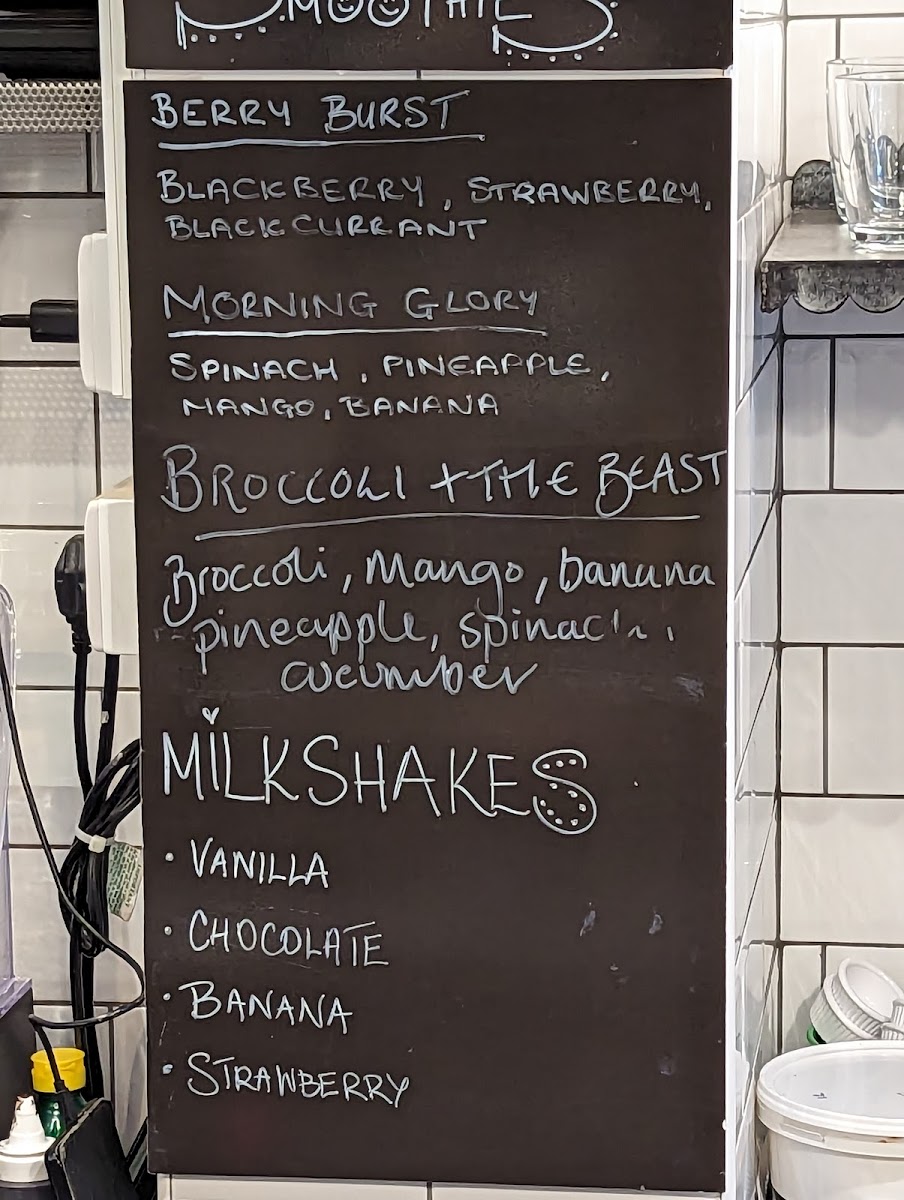 SMOOTHIES
BERRY BURST
BLACKBERRY, STRAWBERRY,
BLACKCURRANT
MORNING GLORY
SPINACH, PINEAPPLE,
MANGO, BANANA
BROCCOLI + THE BEAST
Broccoli, Mango, banana
pineapple, spinach,
cucumber
MILKSHAKES
· VANILLA
· CHOCOLATE
· BANANA
· STRAWBERRY